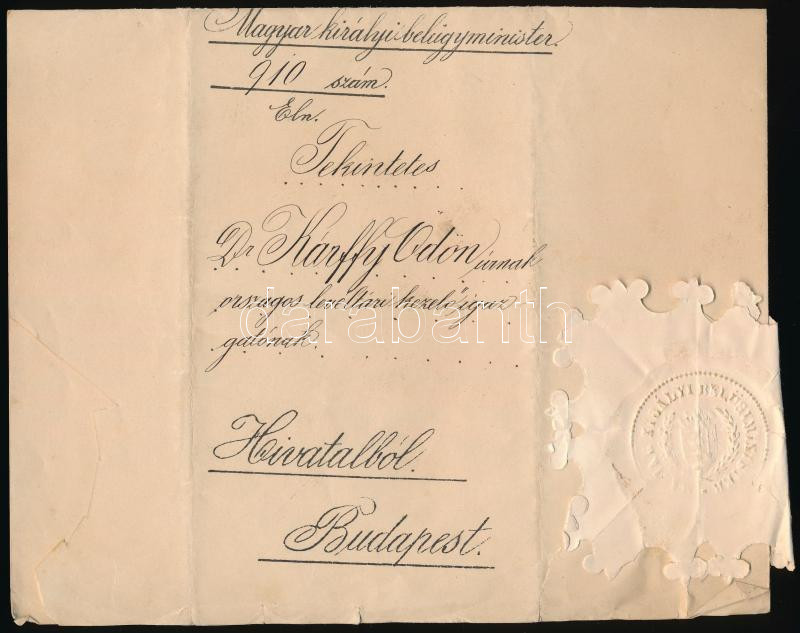 Magyar királyi belügyminister.
910 szám.
Eln.
Tekintetes
Dr Kárffy Ödön úrnak
országos levéltári kezelő igaz
gatónak.
Hivatalból.
Budapest.
darabanth
KIRÁLYI BELÜGYMINISTER